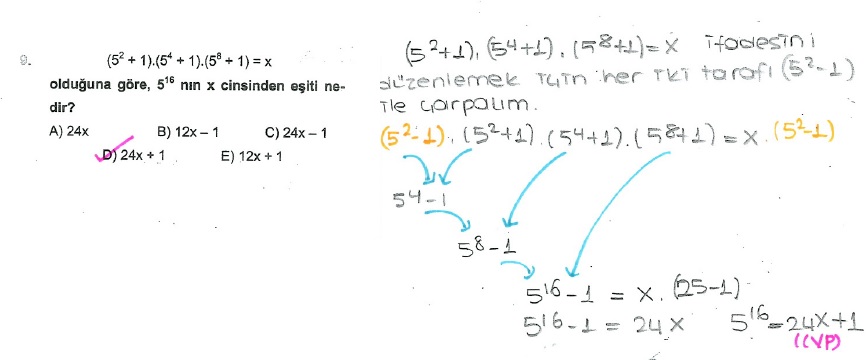 9.
(5² + 1).(5⁴ + 1).(5⁸ + 1) = x
olduğuna göre, 5¹⁶ nın x cinsinden eşiti ne-
dir?
A) 24x B) 12x – 1 C) 24x – 1
D) 24x + 1 E) 12x + 1
(5²+1).(5⁴+1).(5⁸+1)=x ifadesini
düzenlemek için her iki tarafı (5²-1)
ile çarpalım.
(5²-1).(5²+1).(5⁴+1).(5⁸+1)=x.(5²-1)
5⁴-1
5⁸-1
5¹⁶-1 = x.(25-1)
5¹⁶-1 = 24x 5¹⁶=24x+1
(CVP)